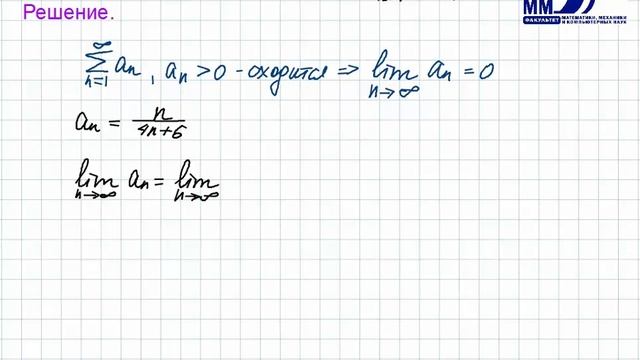 Решение.
ММ
ФАКУЛЬТЕТ МАТЕМАТИКИ, МЕХАНИКИ И КОМПЬЮТЕРНЫХ НАУК
∑_{n=1}^{∞} a_n, a_n > 0 - сходится ⇒ lim_{n→∞} a_n = 0
a_n = n/(4n+6)
lim_{n→∞} a_n = lim_{n→∞}